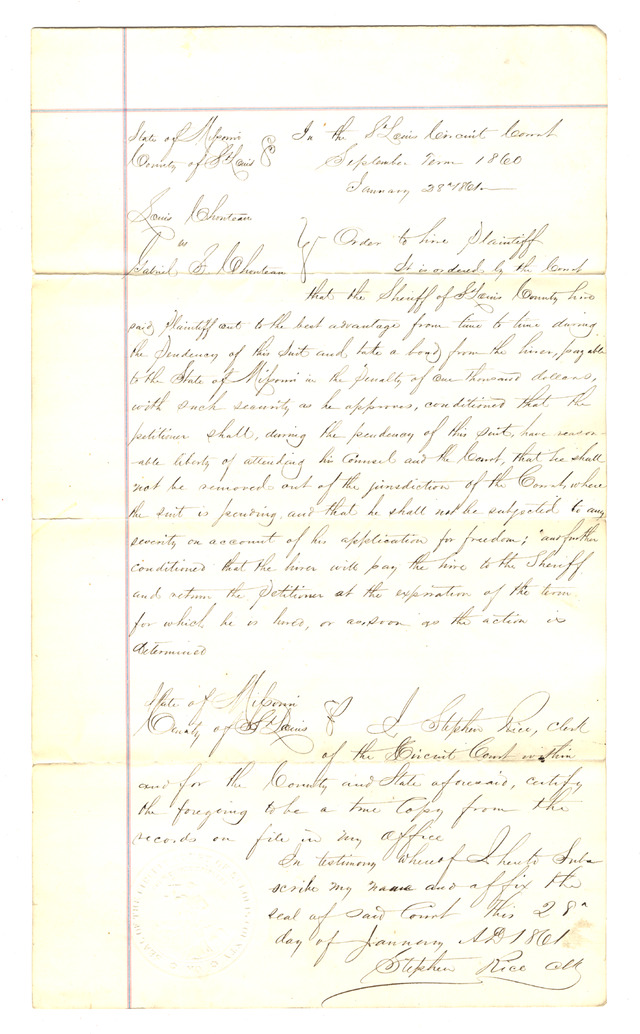 State of Missouri
County of St Louis
In the St Louis Circuit Court
September Term 1860
January 28th 1861
Louis Chouteau
vs
Gabriel S. Chouteau
Order to hire Plaintiff
It is ordered by the Court
that the Sheriff of St Louis County hire
said Plaintiff out to the best advantage from time to time during
the pendency of this suit and, take a bond, from the hirer, payable
to the State of Missouri in the Penalty of one thousand dollars,
with such security as he approves, conditioned that the
petitioner shall, during the pendency of this suit, have reason-
-able liberty of attending his Counsel and the Court, that he shall
not be removed out of the jurisdiction of the Court, where
the suit is pending, and that he shall not be subjected to any
severity on account of his application for freedom; "and further
conditioned that the hirer will pay the hire to the Sheriff
and return the Petitioner at the expiration of the term
for which he is hired, or as soon as the action is
determined
State of Missouri
County of St Louis
I Stephen Rice, clerk
of the Circuit Court within
and for the County and State aforesaid, certify
the foregoing to be a true Copy from the
records on file in my office
In testimony whereof I hereto Sub-
scribe my name and affix the
seal of said Court this 28th
day of January AD 1861
Stephen Rice Clk